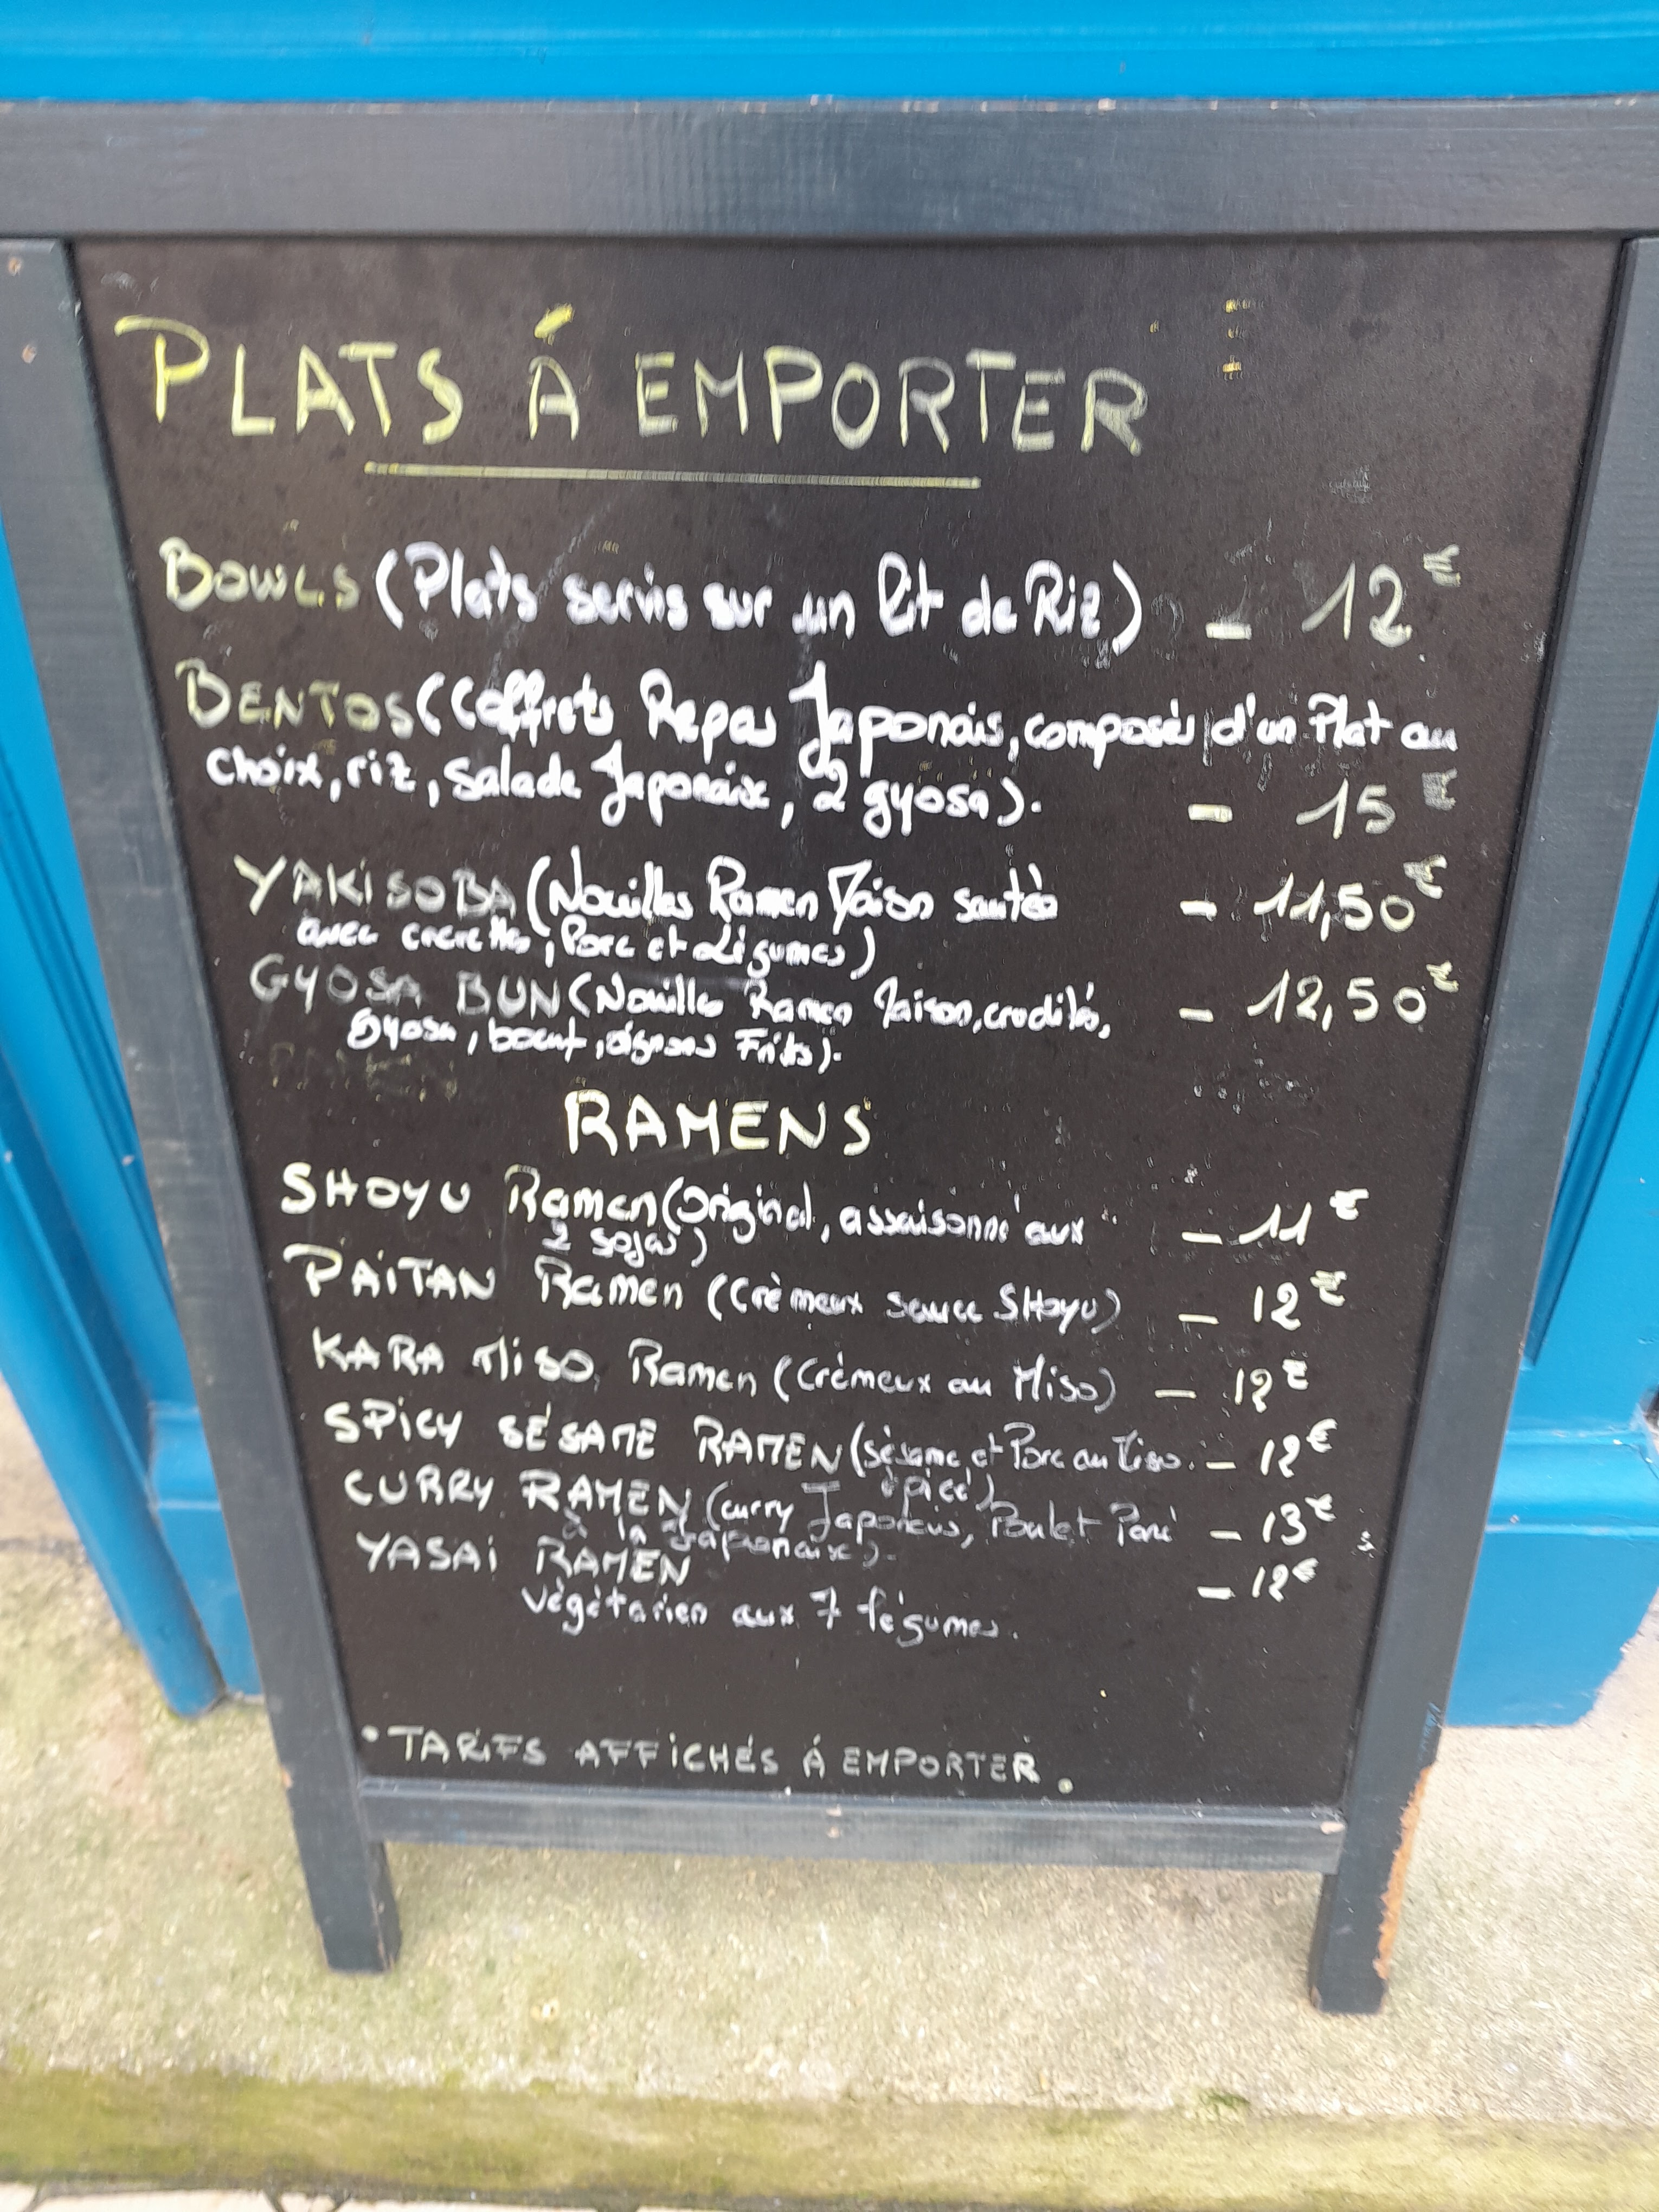 PLATS À EMPORTER
BOWLS (Plats servis sur un lit de Riz) - 12€
BENTOS (Coffrets Repas Japonais, composés d'un Plat au
choix, riz, salade Japonaise, 2 gyosa). - 15€
YAKISOBA (Nouilles Ramen Maison sautés - 11,50€
avec crevettes, Porc et Légumes)
GYOSA BUN (Nouilles Ramen Maison, crudités, - 12,50€
Gyosa, boeuf, oignons Frits).
RAMENS
SHOYU Ramen (Original, assaisonné aux - 11€
2 sojas)
PAITAN Ramen (Crèmeux sauce SHoyu) - 12€
KARA MISO Ramen (Crèmeux au Miso) - 12€
SPICY SÉSAME RAMEN (sésame et Porc au Miso - 12€
épicé)
CURRY RAMEN (curry Japonais, Poulet Pané - 13€
à la Japonaise).
YASAI RAMEN - 12€
végétarien aux 7 légumes.
• TARIFS AFFICHÉS À EMPORTER.